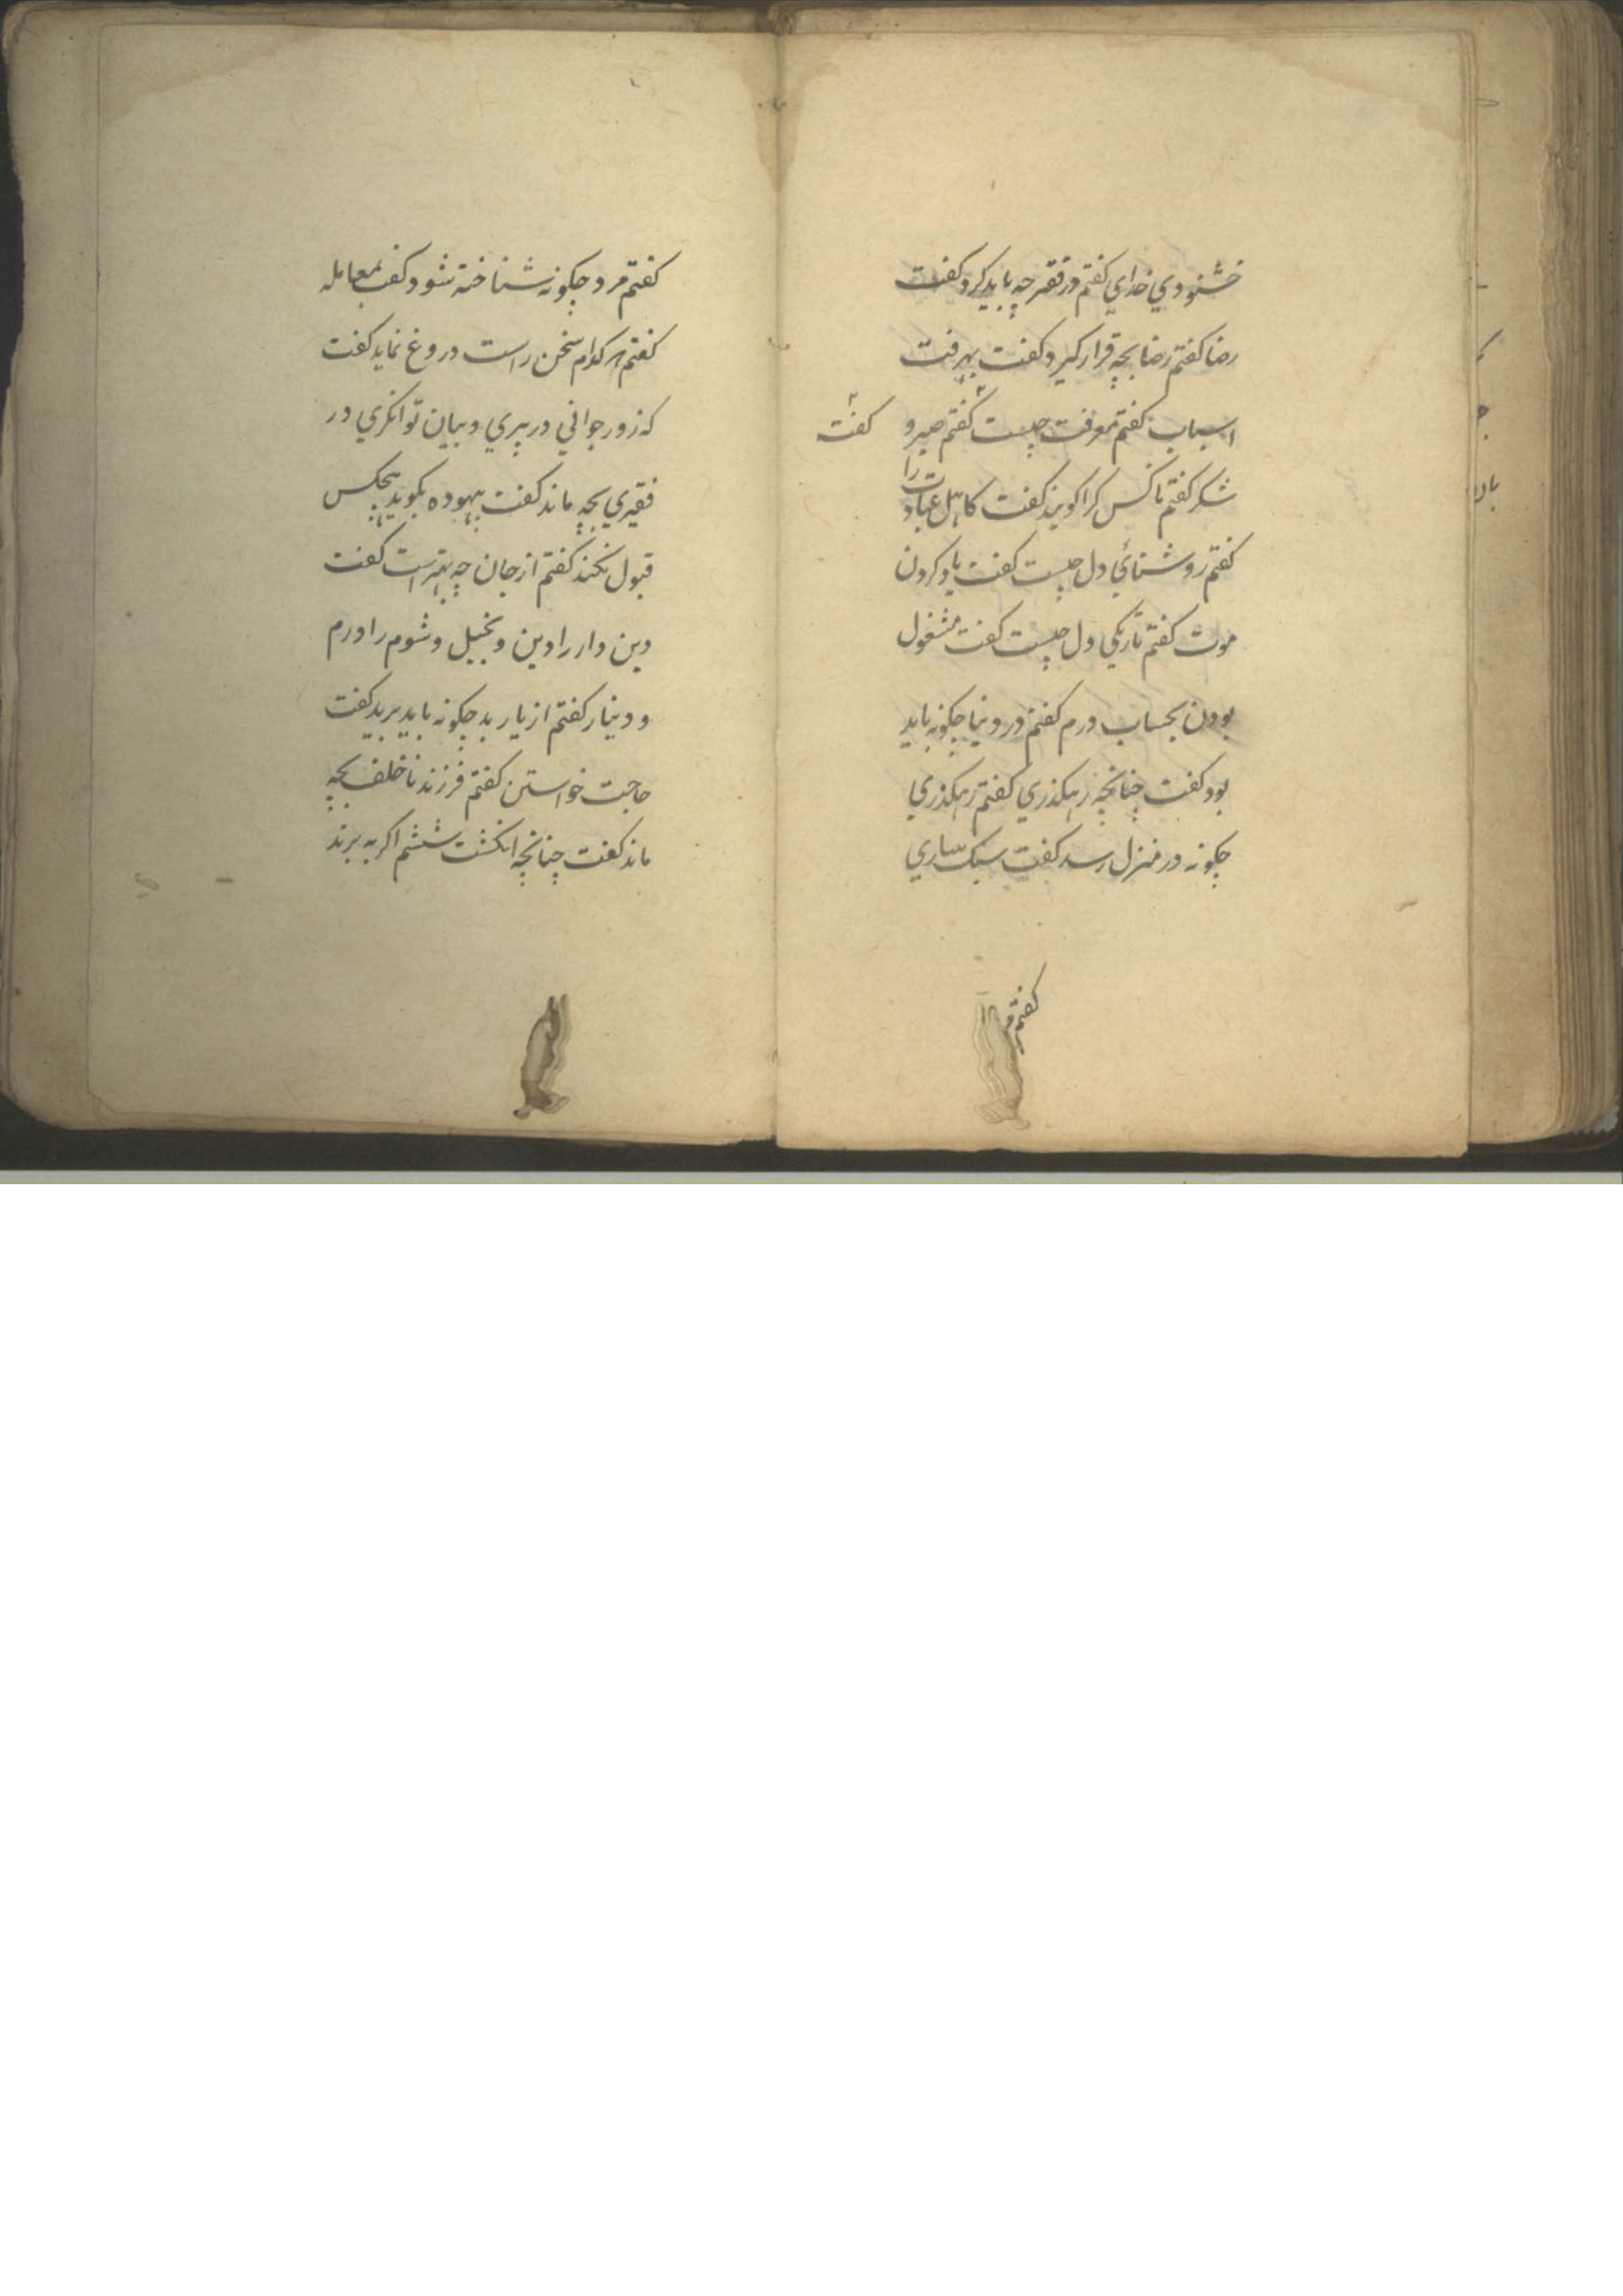 خشنودي خداي كفتم در فقر چه بايد كرد كفت
رضا كفتم رضا بچه قرار كيرد كفت بهرفت
اسباب كفتم معرفت چيست كفتم صبر و
كفت
شكر كفتم ناكس كرا كويند كفت كاهل عبادت را
كفتم روشنائي دل چيست كفت ياد كردن
موت كفتم تاريكي دل چيست كفت مشغول
بودن بحساب درم كفتم در دنيا چكونه بايد
بود كفت چنانچه رهكذري كفتم رهكذري
چكونه در منزل رسد كفت سبك ساري
كفتم مرد
كفتم مرد چكونه شناخته شود كفت بمعامله
كفتم هر كدام سخن راست دروغ نمايد كفت
كه زور جواني در پيري و بيان توانكري در
فقيري بچه ماند كفت بيهوده بكويد هيچكس
قبول نكند كفتم از جان چه بهتر است كفت
دين دار را دين و بخيل و شوم را درم
و دينار كفتم از يار بد چكونه بايد بريد كفت
حاجت خواستن كفتم فرزند ناخلف بچه
ماند كفت چنانچه انكشت ششم اكر به برند